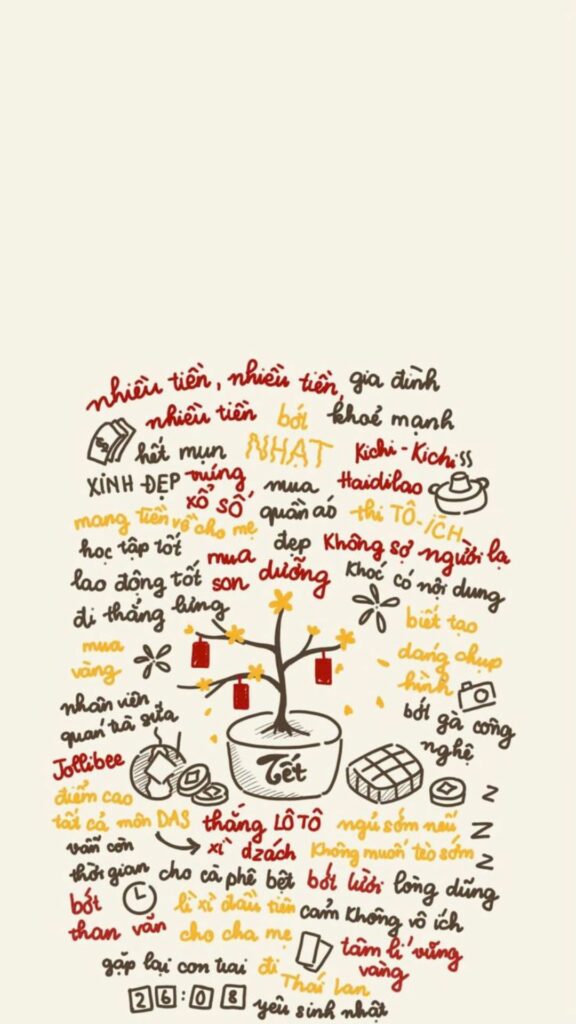 nhiều tiền, nhiều tiền, gia đình
nhiều tiền bớt khoẻ mạnh
hết mụn NHẠT Kichi-Kichi
XINH ĐẸP trúng mua Haidilao
xổ số quần áo thi TÔ-ÍCH
mang tiền về cho mẹ
học tập tốt mua đẹp không sợ người lạ
lao động tốt son dưỡng khóc có nội dung
đi thẳng lưng
biết tạo
mua dáng chụp
vàng hình
nhân viên bớt gà công
quán trà sữa nghệ
Jollibee Tết
điểm cao
tất cả môn DAS thắng LÔ TÔ ngủ sớm nếu
Z
Z
Z
vẫn còn xì dzách không muốn tèo sớm
thời gian cho cà phê bệt bớt lười lòng dũng
bớt lì xì đầu tiên cảm không vô ích
than vãn cho cha mẹ tâm lí vững
vàng
gặp lại con trai đi
Thái Lan
26:08 yêu sinh nhật